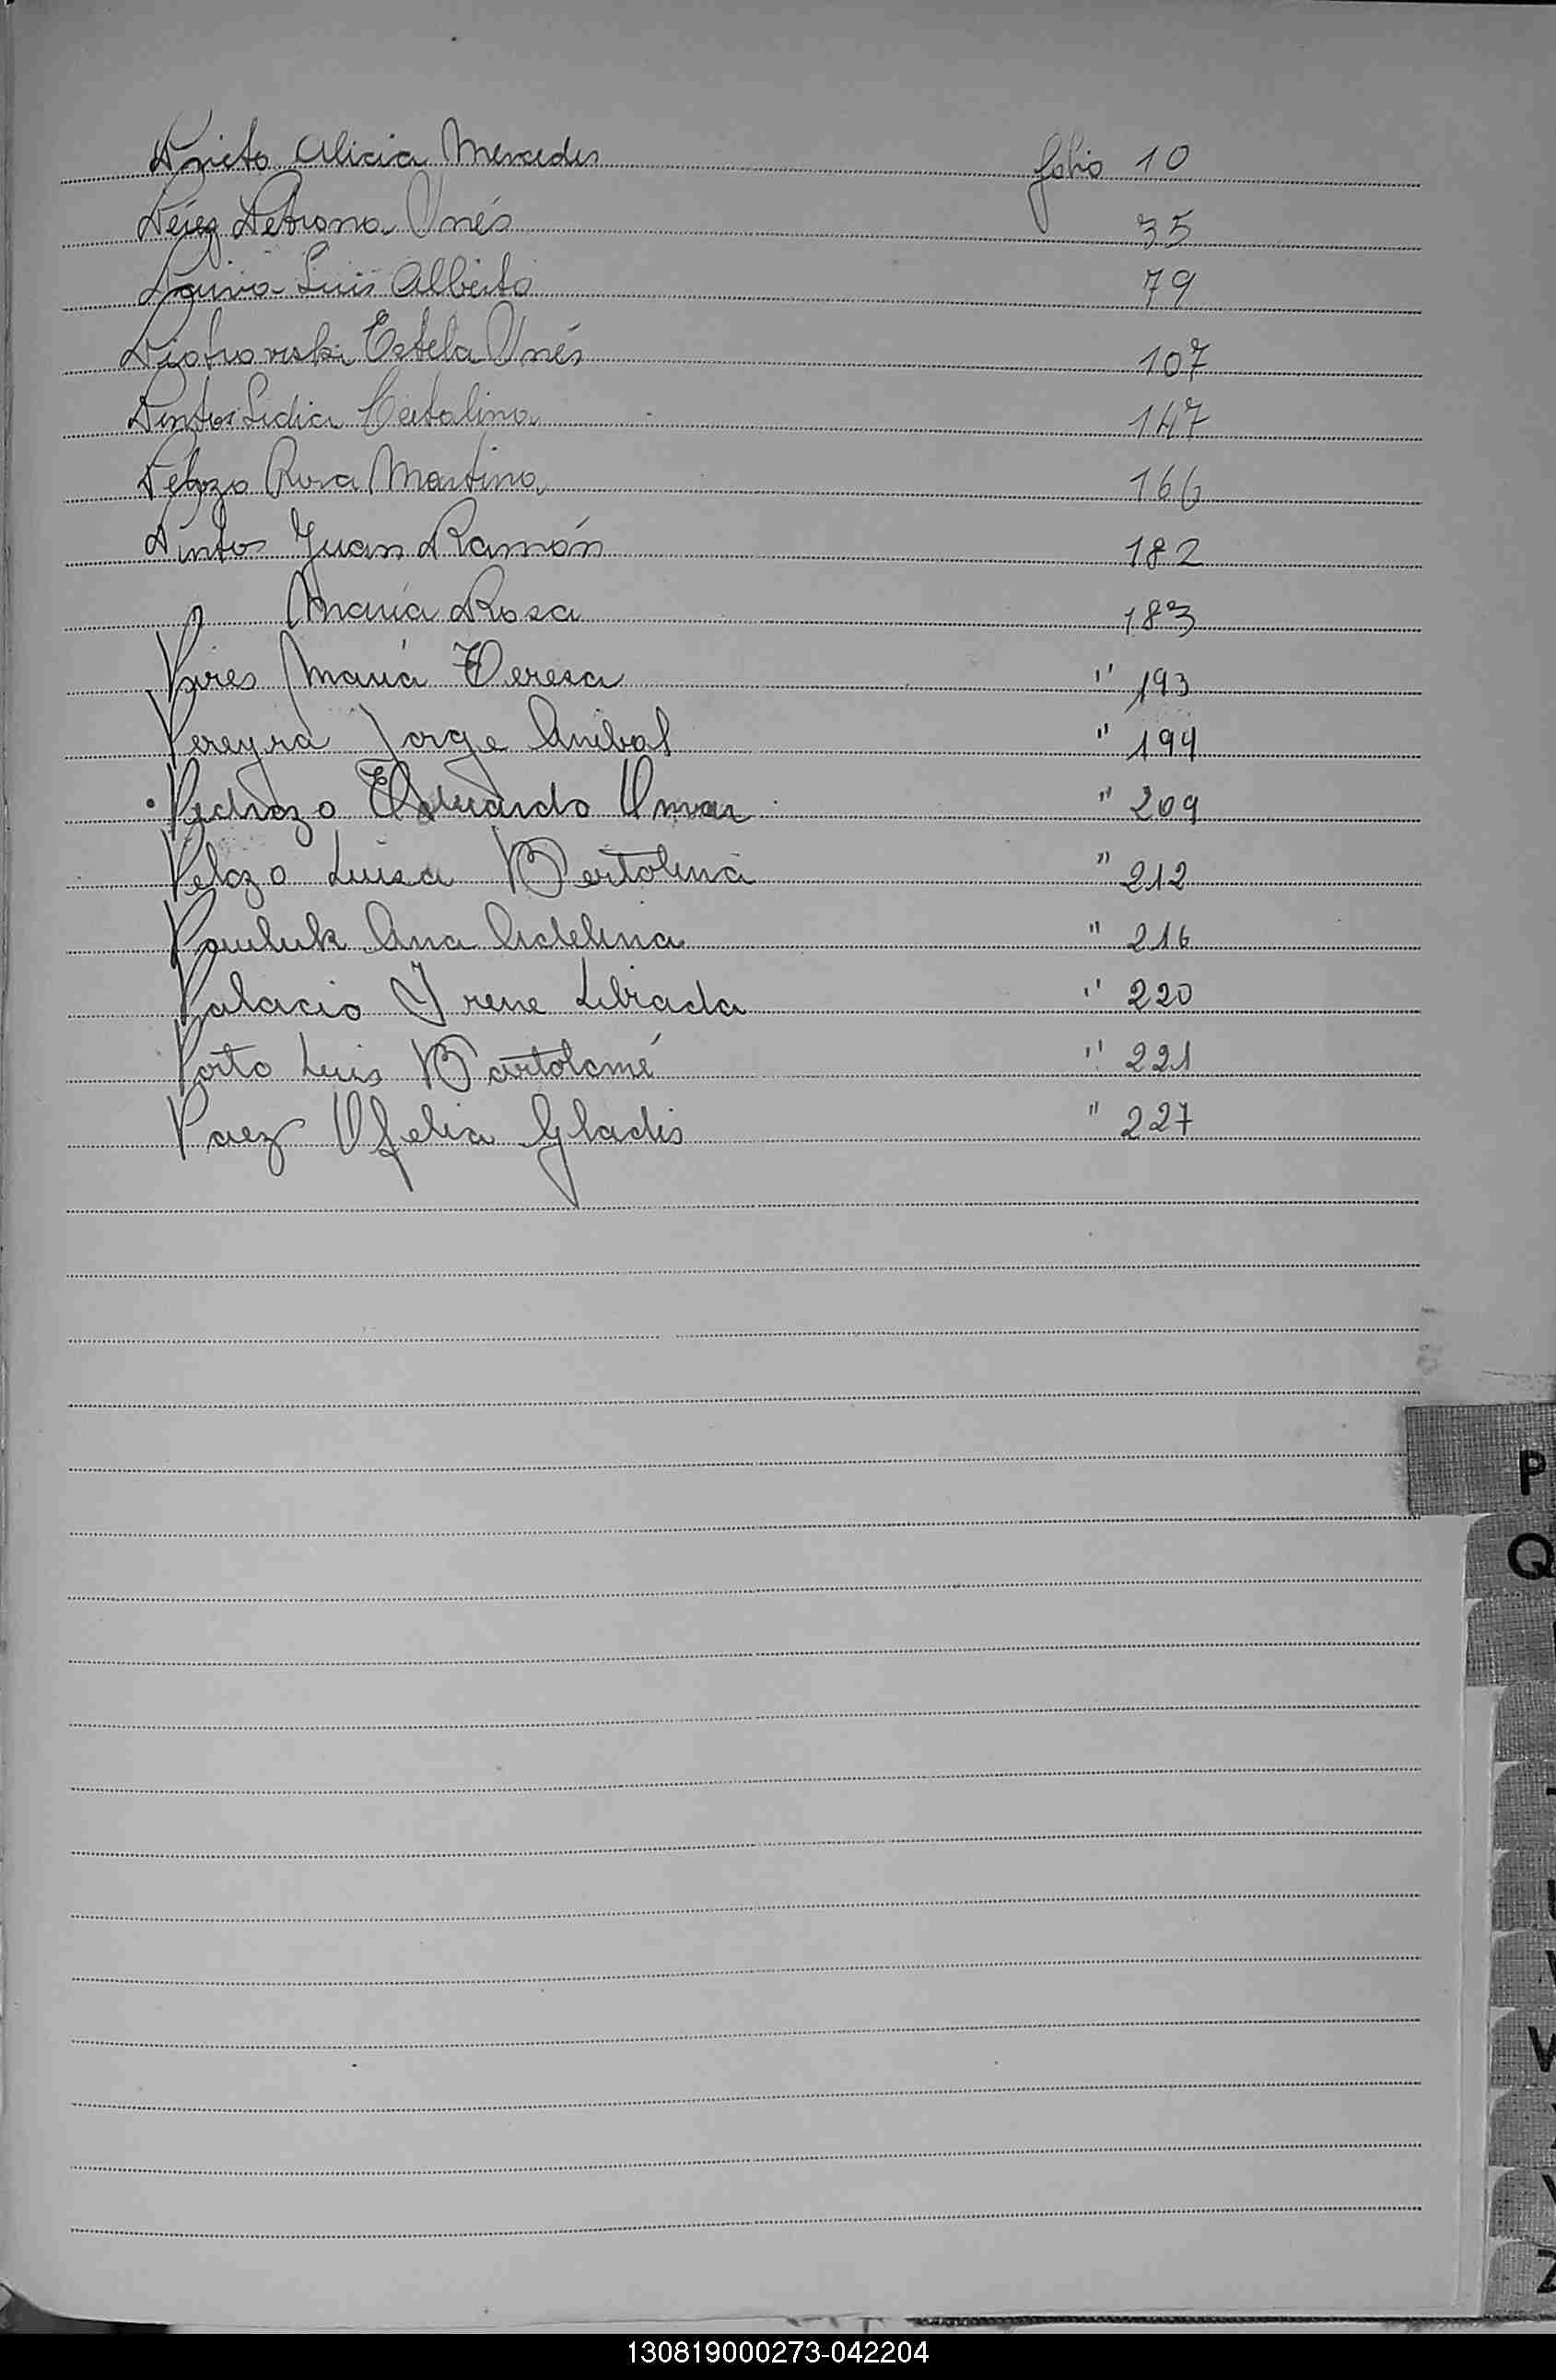 Prieto Alicia Mercedes folio 10
Pérez Petrona Inés 35
Paiva Luis Alberto 79
Piotrowski Estela Inés 107
Pintos Lidia Catalina 147
Pelozo Rosa Martina 166
Pintos Juan Ramón 182
María Rosa 183
Pires María Teresa " 193
Pereyra Jorge Anibal " 194
Pedrozo Eduardo Omar " 209
Pelozo Luisa Bertolina " 212
Pauluk Ana Adelina " 216
Palacio Irene Librada " 220
Porto Luis Bartolomé " 221
Paez Ofelia Gladis " 227
P
Q
U
V
W
Z
130819000273-042204